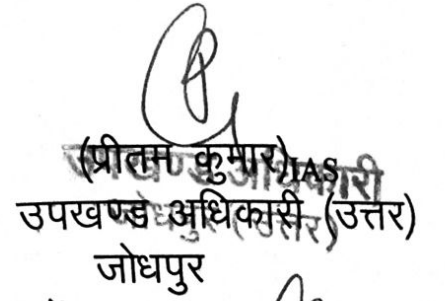 (प्रीतम कुमार)IAS
उपखण्ड अधिकारी (उत्तर)
जोधपुर